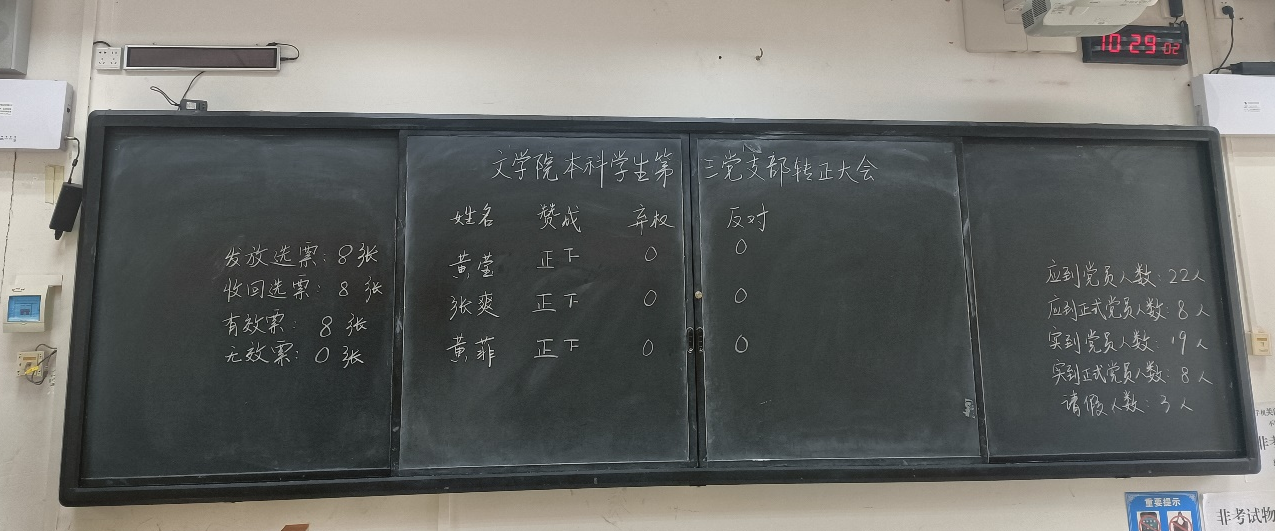 10:29 02
文学院本科学生第三党支部转正大会
姓名 赞成 弃权 反对
黄莹 正下 0 0
张爽 正下 0 0
黄菲 正下 0 0
发放选票：8张
收回选票：8张
有效票：8张
无效票：0张
应到党员人数：22人
应到正式党员人数：8人
实到党员人数：19人
实到正式党员人数：8人
请假人数：3人
重要提示
非考试物